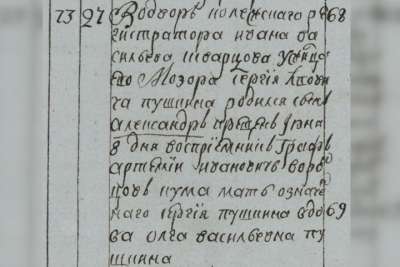 73 27 Во дворѣ колежскаго ре 68
гистратора ивана ва
сильева шкварцова у жилца
ево Моэора сергия лвови
ча пушкина родился сынъ
александръ крещенъ июня
8 дня восприемникъ графъ
артемий ивановичь ворон
цовъ кума мать означен
наго сергия пушкина вдо 69
ва олга васильевна пу
шкина